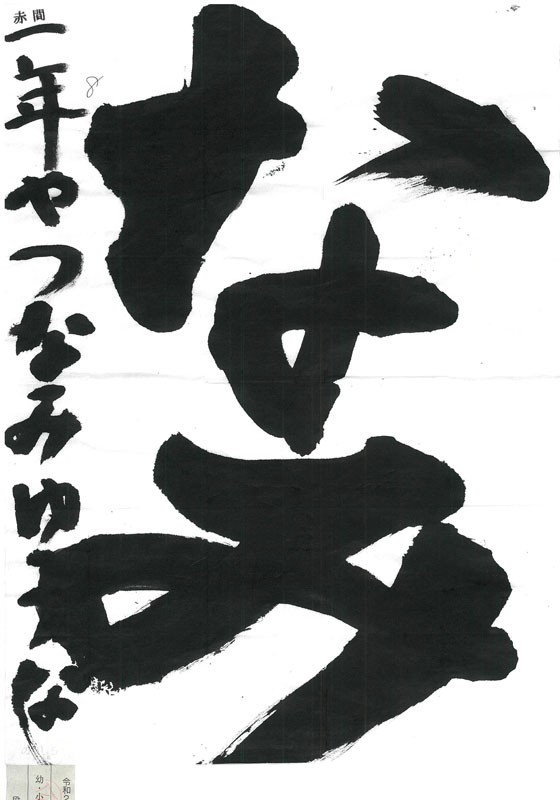 なみ
赤間
一年やつなみゆうな
令和2
幼・小